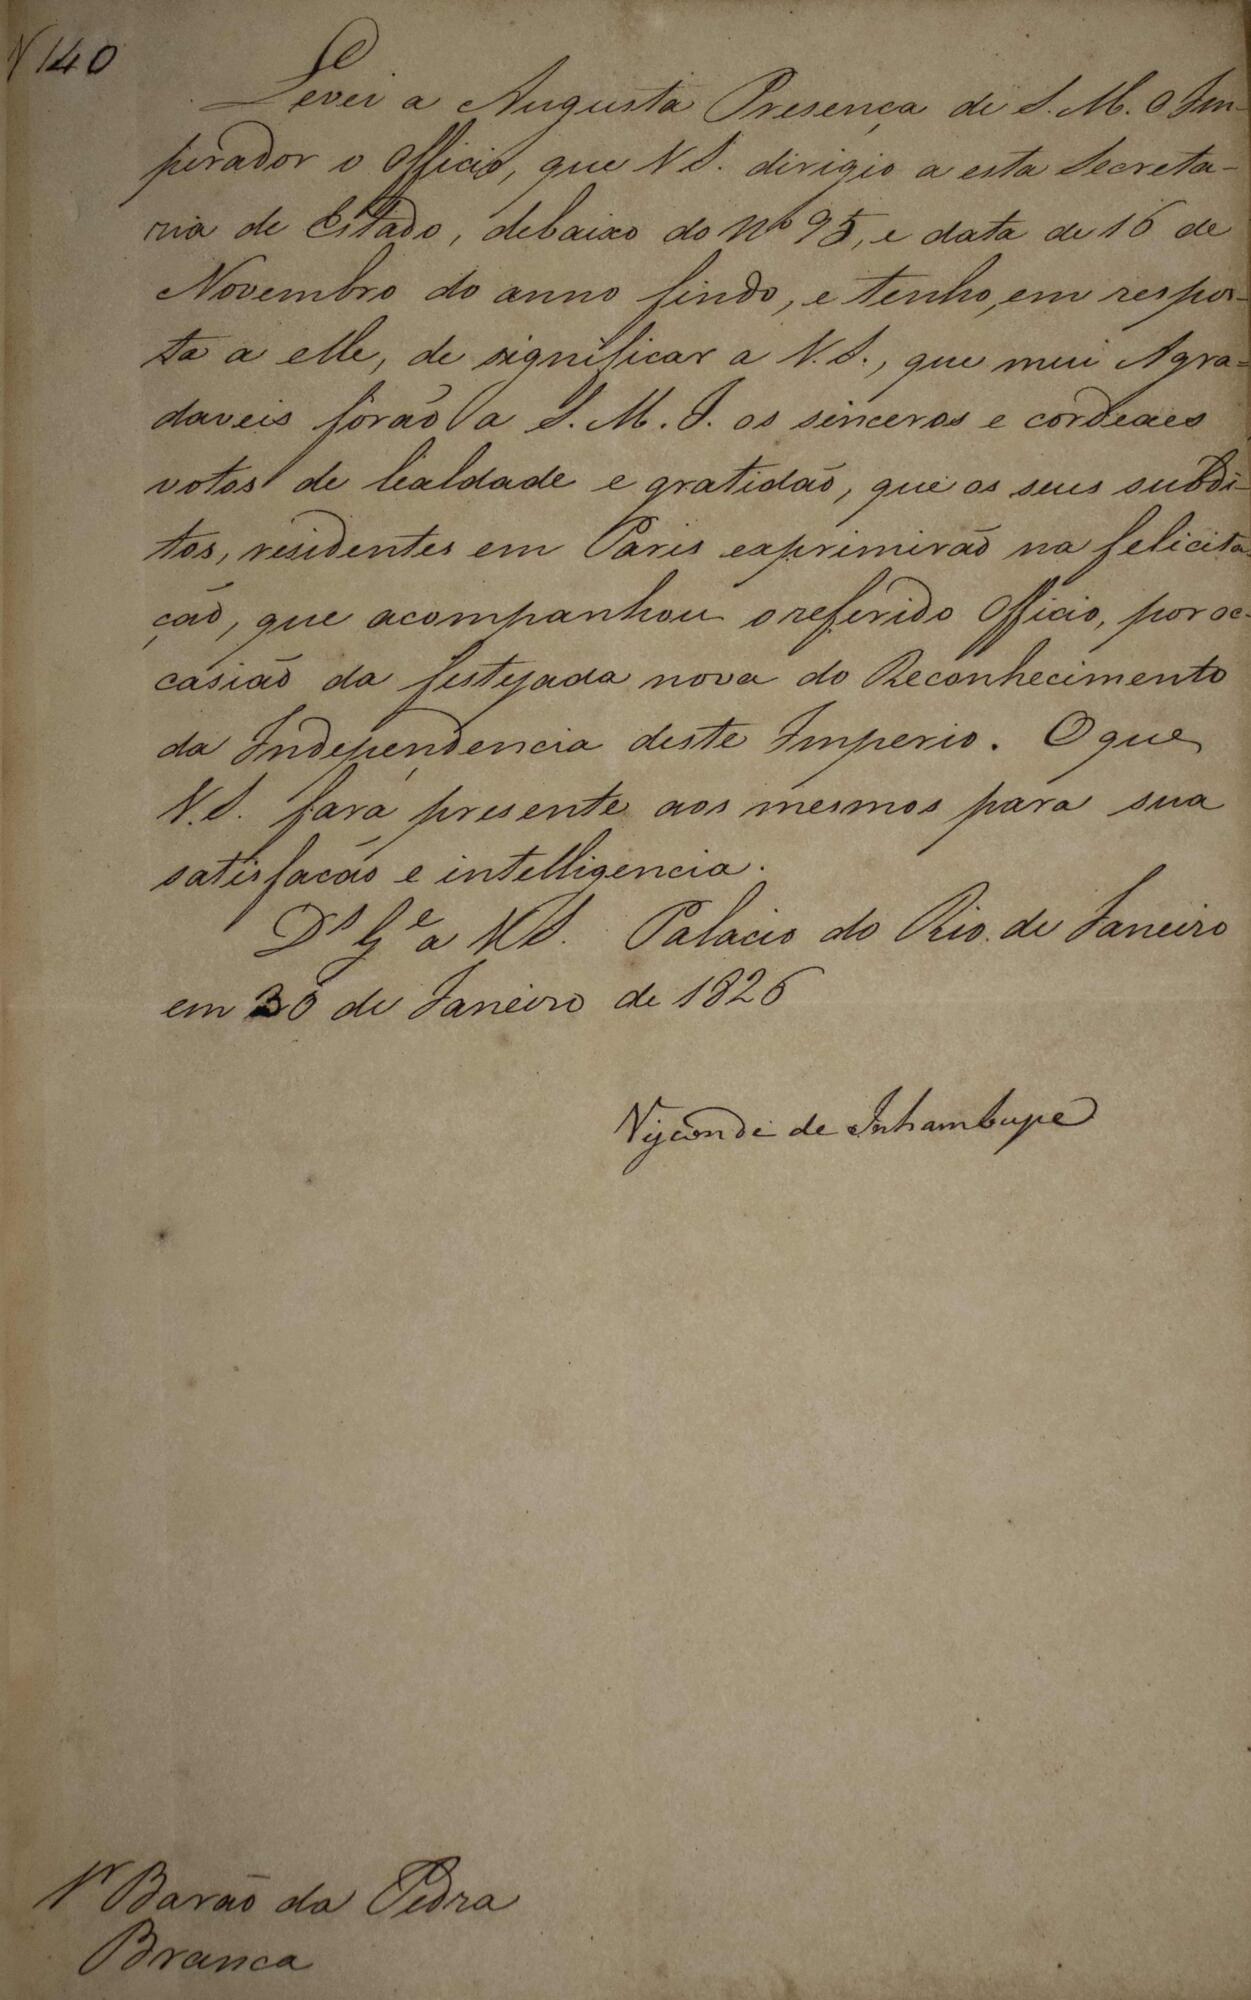 N 140
Levei a Augusta Presença de S. M. O Im-
perador o Officio, que V S. dirigio a esta Secreta-
ria de Estado, debaixo do Nº 95, e data de 16 de
Novembro do anno findo, e tenho, em respos-
ta a elle, de significar a V. S., que mui Agra-
daveis forão a S. M. I. os sinceros e cordeaes
votos de lealdade e gratidão, que os seus subdi-
tos, residentes em Paris exprimirão na felicita-
ção, que acompanhou o referido Officio, por oc-
casião da festejada nova do Reconhecimento
da Independencia deste Imperio. O que
V. S. fará presente aos mesmos para sua
satisfacão e intelligencia.
Ds Ge a V S. Palacio do Rio de Janeiro
em 30 de Janeiro de 1826
Visconde de Inhambupe
Sr Barão da Pedra
Branca